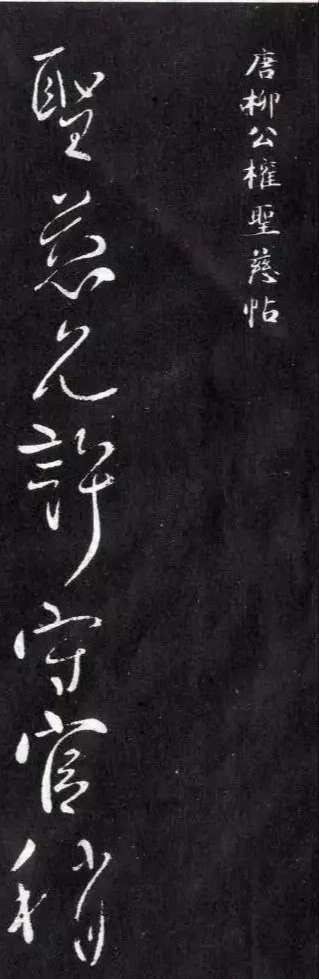 唐柳公權聖慈帖
聖慈允許守官稍